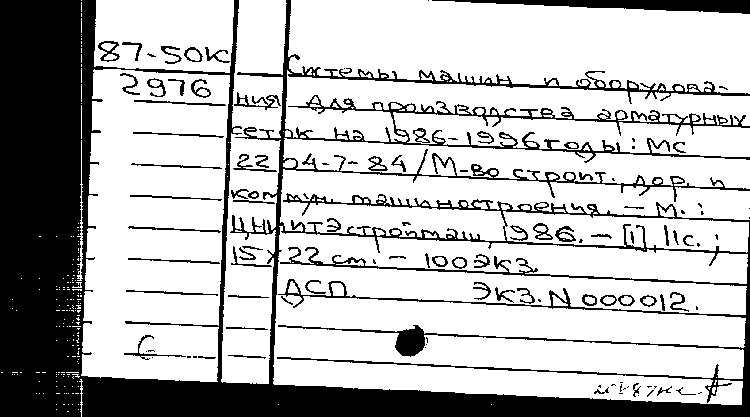 87-50К
2976
Системы машин и оборудова-
ния для производства арматурных
сеток на 1986-1996 годы: МС
22 04-7-84/М-во строит., дор. и
коммун. машиностроения. – М.:
ЦНИИТЭстроймаш, 1986. – [1], 11с.;
15х22 см. – 100 экз.
ДСП. Экз. N 000012.